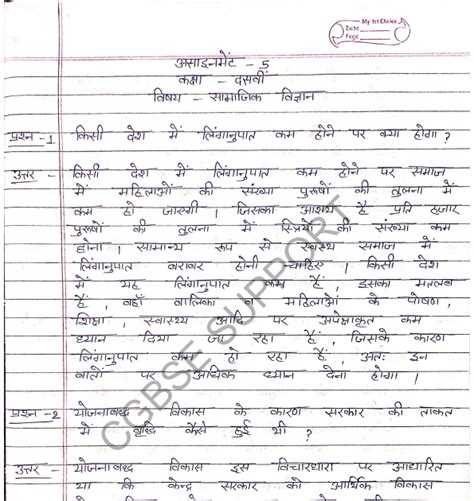 My 1st Choice
Date
Page
असाइनमेंट - 5
कक्षा - दसवीं
विषय - सामाजिक विज्ञान
प्रश्न -1 किसी देश में लिंगानुपात कम होने पर क्या होगा ?
उत्तर - किसी देश में लिंगानुपात कम होने पर समाज
में महिलाओं की संख्या पुरुषों की तुलना में
कम हो जाएगी । जिसका आशय है प्रति हजार
पुरुषों की तुलना में स्त्रियों की संख्या कम
होना । सामान्य रूप से स्वस्थ समाज में
लिंगानुपात बराबर होनी चाहिए । किसी देश
में यह लिंगानुपात कम है , इसका मतलब
है , वहाँ बालिका व महिलाओं के पोषण ,
शिक्षा , स्वास्थ्य आदि पर अपेक्षाकृत कम
ध्यान दिया जा रहा है , जिसके कारण
लिंगानुपात कम हो रहा हैं , अतः इन
बातों पर अधिक ध्यान देना होगा ।
प्रश्न -2 योजनाबद्ध विकास के कारण सरकार की ताकत
में वृद्धि कैसे हुई थी ?
उत्तर - योजनाबद्ध विकास इस विचारधारा पर आधारित
था कि केन्द्र सरकार को आर्थिक विकास
CGBSE SUPPORT